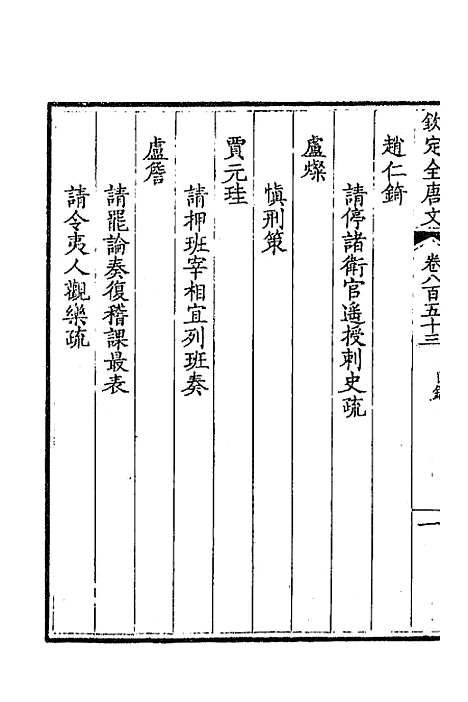 欽定全唐文 卷八百五十三 目錄 一
趙仁錡
請停諸衛官遥授刺史疏
盧燦
愼刑策
賈元珪
請押班宰相宜列班奏
盧詹
請罷論奏復稽課最表
請令夷人觀樂疏